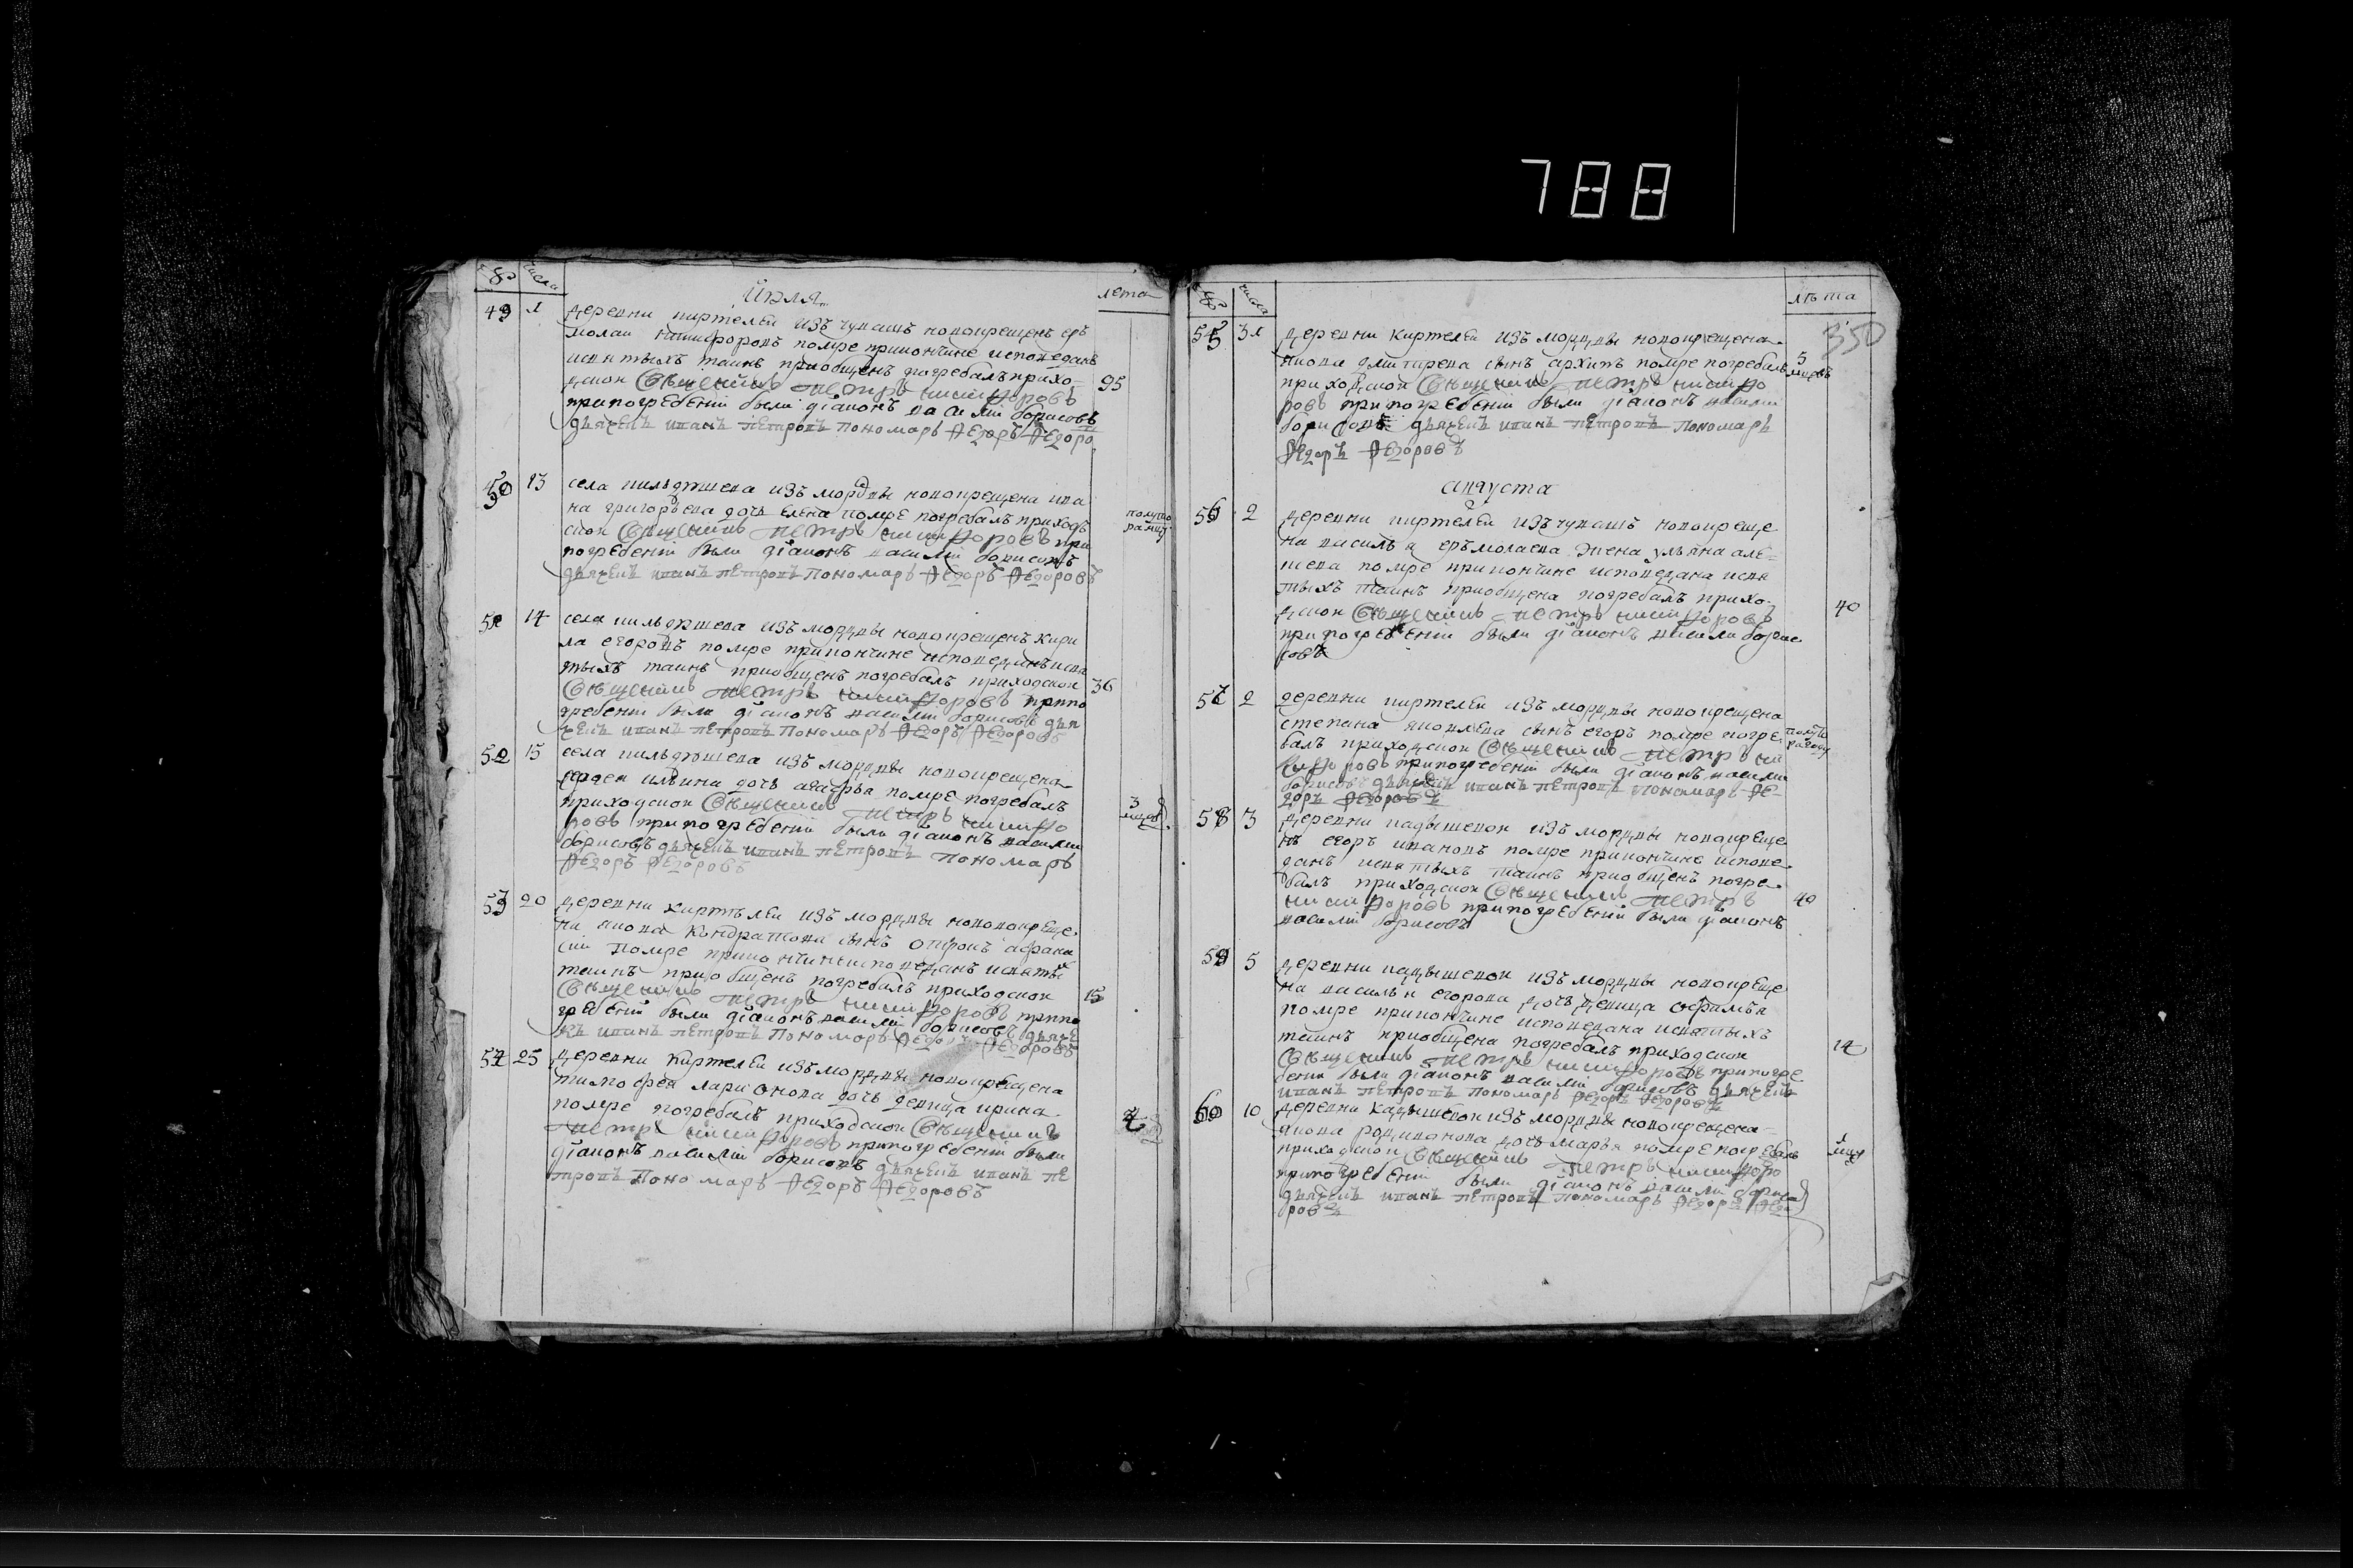 788
№ числа
июля
лета
49 1 деревни киртелеи изъ чувашъ новокрещенъ ер
молаи никифоровъ помре прикончине исповеданъ
исвятыхъ таинъ приобщенъ погребалъ прихо
дскои священникъ петръ никифоровъ 95
припогребени были дiаконъ василiи борисовъ
дьячекъ иванъ петровъ пономарь Федоръ Федоро
50 13 села кильдюшева изъ мордвы новокрещена ива
на григорьева дочь елена помре погребалъ приход
скои священникъ петръ никифоровъ при
полуто
рагоду
погребенiи были дiаконъ василiи борисовъ
дьячекъ иванъ петровъ пономарь Федоръ Федоровъ
51 14 села кильдюшева изъ мордвы новокрещенъ кири
ла егоровъ помре прикончине исповеданъ исвя
тыхъ таинъ приобщенъ погребалъ приходскои
священникъ петръ никифоровъ припо 36
гребенiи были дiаконъ василiи борисовъ дья
чекъ иванъ петровъ пономарь Федоръ Федоровъ
52 15 села кильдюшева изъ мордвы новокрещена
ильина дочь агафья помре погребалъ
приходскои священникъ петръ никифо 3
ровъ припогребенiи были дiаконъ василiи
борисовъ дьячекъ иванъ петровъ пономарь
Федоръ Федоровъ
53 20 деревни киртѣлеи изъ мордвы новокреще
на якова кондратова сынъ отрокъ афана
сiи помре прикончине исповеданъ исвятых
таинъ приобщенъ погребалъ приходскои
священникъ петръ никифоровъ припо 15
гребенiи были дiаконъ василiи борисовъ дьяче
къ иванъ петровъ пономарь Федоръ Федоровъ
54 25 деревни киртелеи изъ мордвы новокрещена
тимофея ларионова дочь девица ирина
помре погребалъ приходскои священникъ
петръ никифоровъ припогребенiи были
дiаконъ василiи борисовъ дьячекъ иванъ пе
тровъ пономарь Федоръ Федоровъ
№ числа
лѣта
350
55 31 деревни киртелеи изъ мордвы новокрещена
якова дмитрева сынъ архипъ помре погребалъ 5
приходскои священникъ петръ никифо
ровъ припогребенiи были дiаконъ василiи
борисовъ дьячекъ иванъ петровъ пономарь
Федоръ Федоровъ
августа
56 2 деревни киртелеи изъ чувашъ новокреще
на василья ермолаева жена ульяна але
помре прикончине исповедана исвя
тыхъ таинъ приобщена погребалъ прихо
дскои священникъ петръ никифоровъ 40
припогребенiи были дiаконъ василiи борис
совъ
57 2 деревни киртелеи изъ мордвы новокрещена
степана яковлева сынъ егоръ помре погре
полуто
рагоду
балъ приходскои священникъ петръ ни
кифоровъ припогребенiи были дiаконъ василiи
борисовъ дьячекъ иванъ петровъ пономарь Фе
доръ Федоровъ
58 3 деревни кадышевои изъ мордвы новокреще
нъ егоръ ивановъ помре прикончине испове
данъ исвятыхъ таинъ приобщенъ погре
балъ приходскои священникъ петръ
никифоровъ припогребенiи были дiаконъ 40
василiи борисовъ
59 5 деревни кадышевои изъ мордвы новокреще
на василья егорова дочь девица
помре прикончине исповедана исвятыхъ
таинъ приобщена погребалъ приходскои 14
священникъ петръ никифоровъ припогре
бенiи были дiаконъ василiи борисовъ дьячекъ
иванъ петровъ пономарь Федоръ Федоровъ
60 10 деревни кадышевои изъ мордвы новокрещена
якова родионова дочь марья помре погребалъ
приходскои священникъ петръ никифоро
припогребенiи были дiаконъ василiи борисо
дьячекъ иванъ петровъ пономарь Федоръ Федо
ровъ